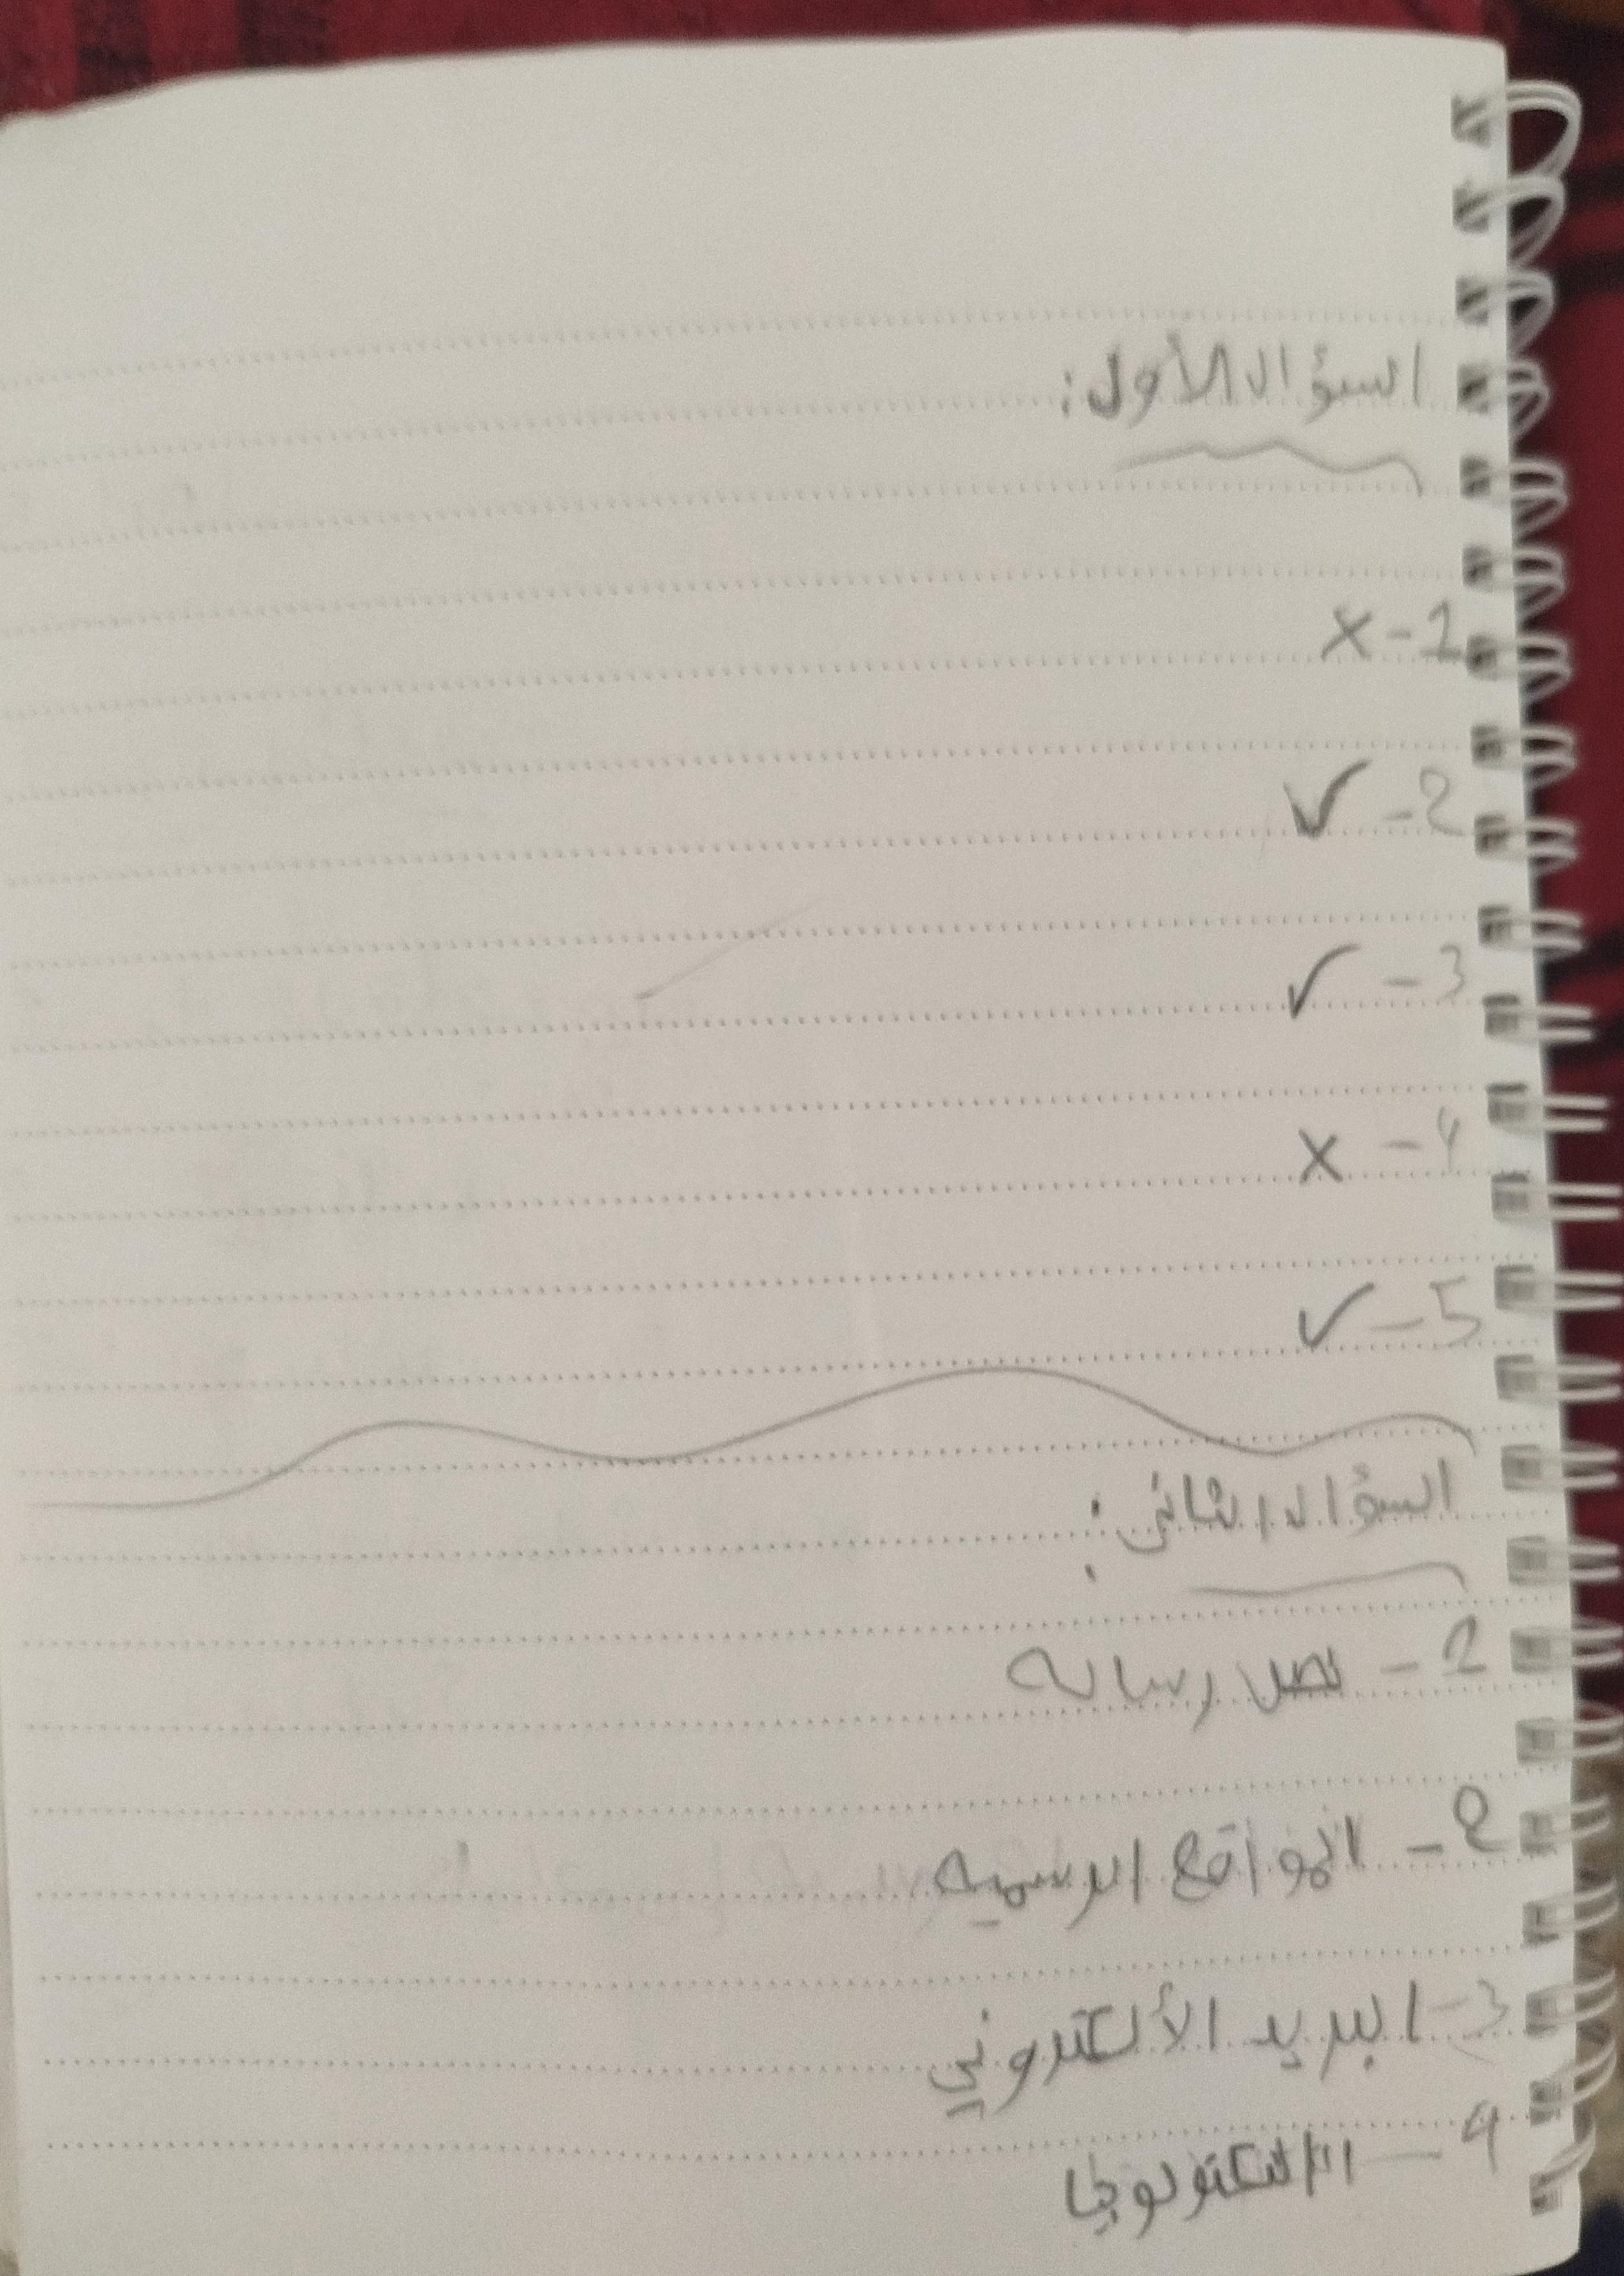 السؤال الأول:
1- ×
2- ✓
3- ✓
4- ×
5- ✓
السؤال الثاني:
1- نص رسالة
2- المواقع الرسمية
3- البريد الألكتروني
4- التكنولوجيا